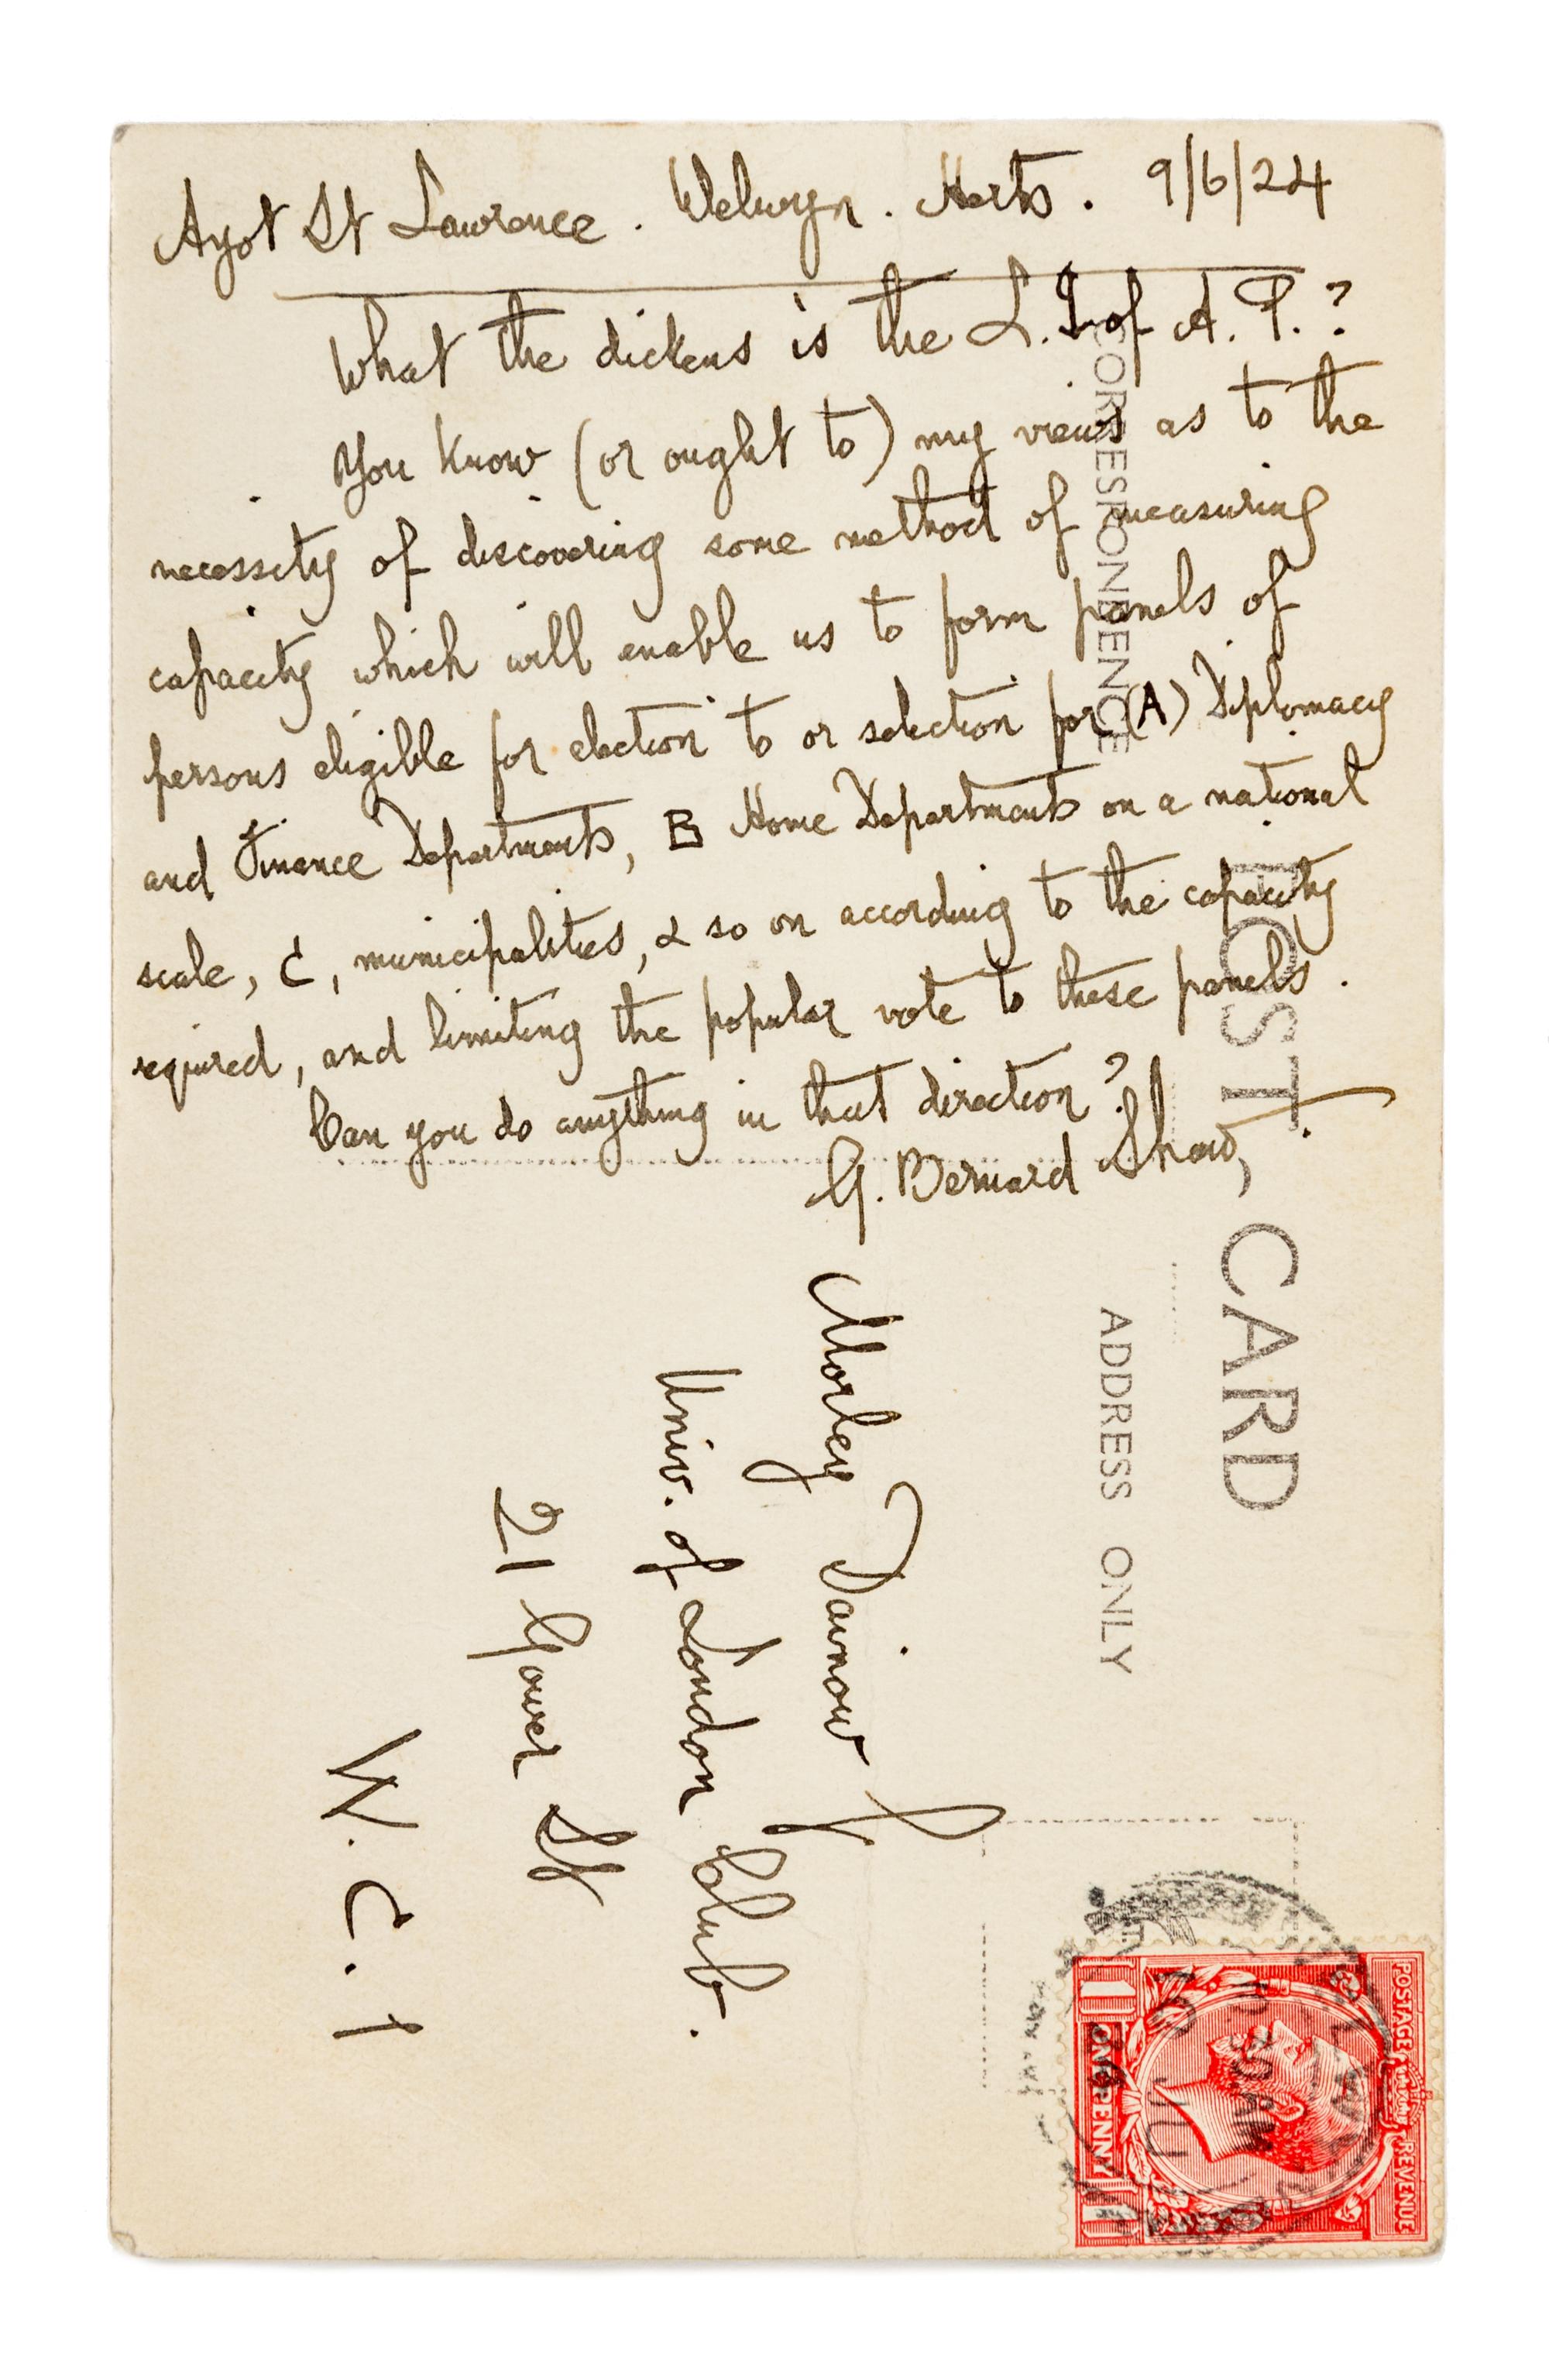 Ayot St Lawrence. Welwyn. Herts. 9/6/24
What the dickens is the L. I. of A. P.?
You know (or ought to) my views as to the
necessity of discovering some method of measuring
capacity which will enable us to form panels of
persons eligible for election to or selection for (A) Diplomacy
and Finance Departments, B Home Departments on a national
scale, C, municipalities, & so on according to the capacity
required, and limiting the popular vote to these panels.
Can you do anything in that direction?
G. Bernard Shaw
POST CARD
CORRESPONDENCE
ADDRESS ONLY
Morley Dainow
Univ. of London Club.
21 Gower St
W. C. 1
POSTAGE REVENUE
ONE PENNY